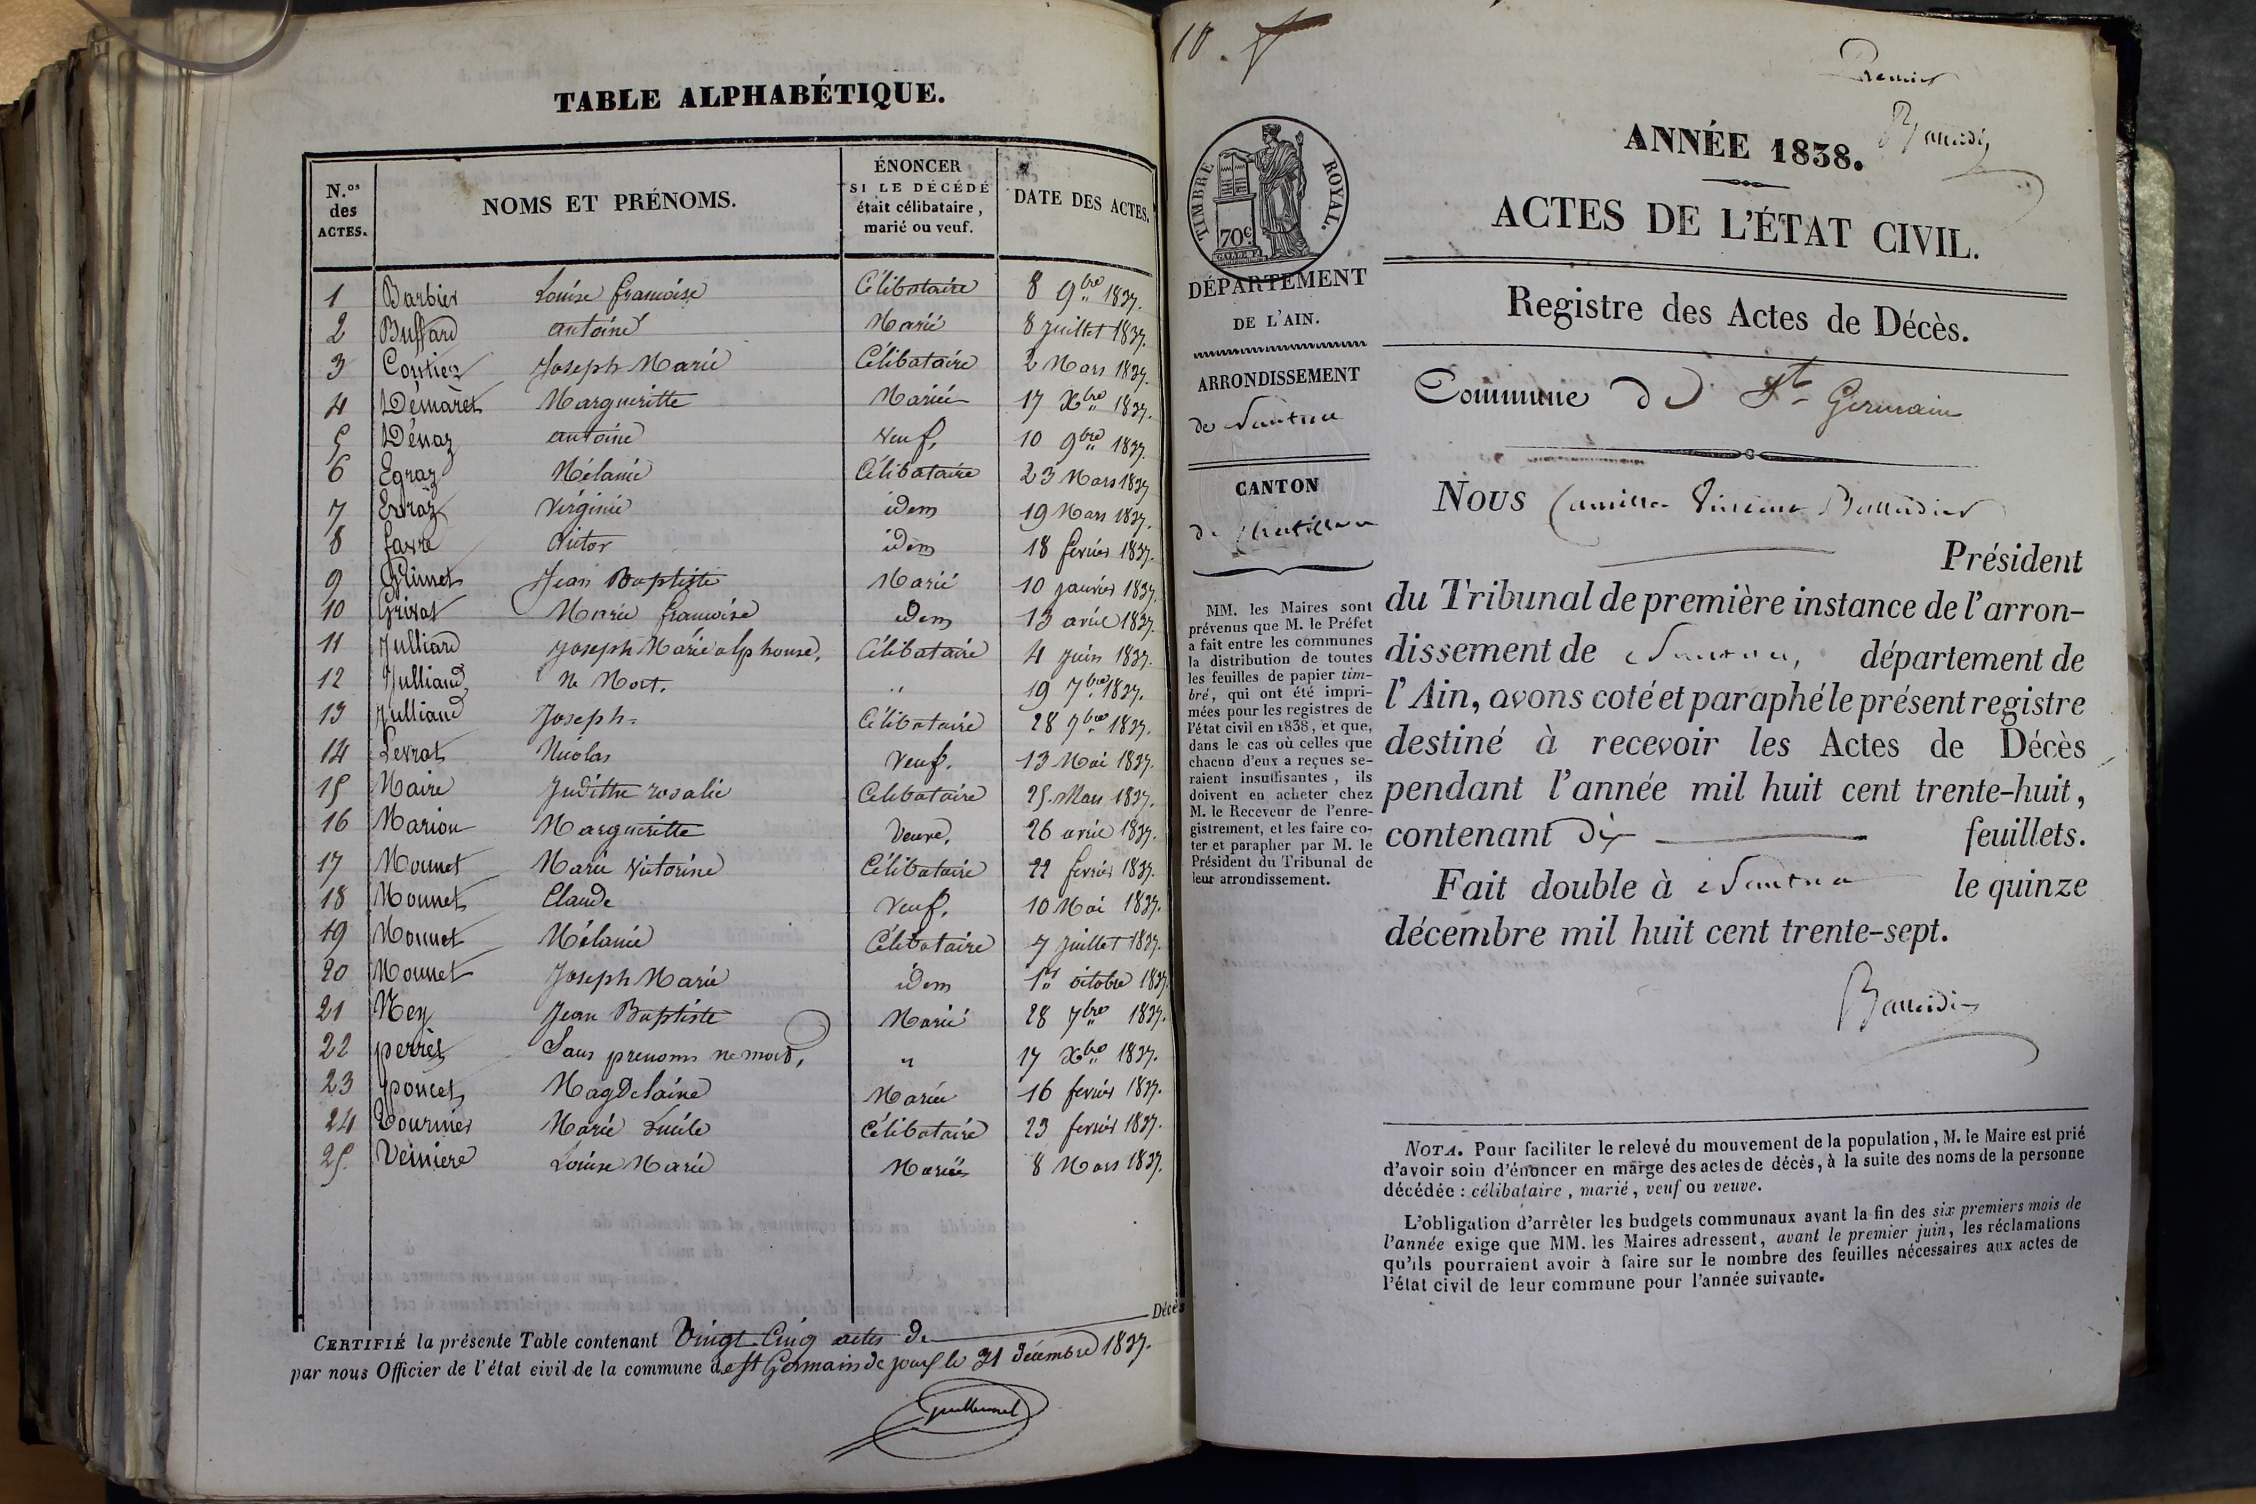 TABLE ALPHABÉTIQUE.
N.os des ACTES.
NOMS ET PRÉNOMS.
ÉNONCER
SI LE DÉCÉDÉ
était célibataire,
marié ou veuf.
DATE DES ACTES.
1 Barbier Louise francoise Célibataire 8 9bre 1837.
2 Buffard antoine Marié 8 juillet 1837.
3 Joseph Marie Célibataire 2 Mars 1837.
4 Démarèt Margueritte Mariée 17 Xbre 1837.
5 Dénaz antoine Veuf. 10 9bre 1837.
6 Egraz Mélanie Célibataire 23 Mars 1837
7 Evraz Virginie idem 19 Mars 1837.
8 favre Victor idem 18 fevrier 1837.
9 Grimet Jean Baptiste Marié 10 janvier 1837.
10 Grivat Marie francoise idem 13 avril 1837.
11 Julliard joseph Marie alphonse, Célibataire 4 juin 1837.
12 Julliand Né Mort. " 19 7bre 1837.
13 Julliand Joseph Célibataire 28 7bre 1837.
14 Levrat Nicolas Veuf. 13 Mai 1837.
15 Maire Judithe rosalie Celibataire 25 Mars 1837.
16 Marion Margueritte Veuve. 26 avril 1837.
17 Mounet Marie Victorine Célibataire 22 fevrier 1837.
18 Mounet Claude Veuf. 10 Mai 1837.
19 Mounet Mélanie Célibataire 7 juillet 1837.
20 Mounet Joseph Marie idem 1er octobre 1837.
21 Ney Jean Baptiste Marié 28 7bre 1837.
22 perret Sans prenoms né mort, " 17 Xbre 1837.
23 poncet Magdelaine Mariée 16 fevrier 1837.
24 Tournier Marie Lucile Célibataire 23 fevrier 1837.
25. Louise Marie Mariée 8 Mars 1837.
CERTIFIÉ la présente Table contenant Vingt Cinq actes de Décès
par nous Officier de l'état civil de la commune de St Germain de joux le 31 décembre 1837.
10.
Premier
ANNÉE 1838.
ACTES DE L'ÉTAT CIVIL.
TIMBRE ROYAL.
70c
DÉPARTEMENT
DE L'AIN.
ARRONDISSEMENT
de Nantua
CANTON
de Chatillon
MM. les Maires sont
prévenus que M. le Préfet
a fait entre les communes
la distribution de toutes
les feuilles de papier tim-
bré, qui ont été impri-
mées pour les registres de
l'état civil en 1838, et que,
dans le cas où celles que
chacun d'eux a reçues se-
raient insuffisantes, ils
doivent en acheter chez
M. le Receveur de l'enre-
gistrement, et les faire co-
ter et parapher par M. le
Président du Tribunal de
leur arrondissement.
Registre des Actes de Décès.
Commune de St Germain
Nous Camille Vincent
Président
du Tribunal de première instance de l'arron-
dissement de Nantua, département de
l'Ain, avons coté et paraphé le présent registre
destiné à recevoir les Actes de Décès
pendant l'année mil huit cent trente-huit,
contenant dix feuillets.
Fait double à Nantua le quinze
décembre mil huit cent trente-sept.
NOTA. Pour faciliter le relevé du mouvement de la population, M. le Maire est prié
d'avoir soin d'énoncer en marge des actes de décès, à la suite des noms de la personne
décédée : célibataire, marié, veuf ou veuve.
L'obligation d'arrêter les budgets communaux avant la fin des six premiers mois de
l'année exige que MM. les Maires adressent, avant le premier juin, les réclamations
qu'ils pourraient avoir à faire sur le nombre des feuilles nécessaires aux actes de
l'état civil de leur commune pour l'année suivante.